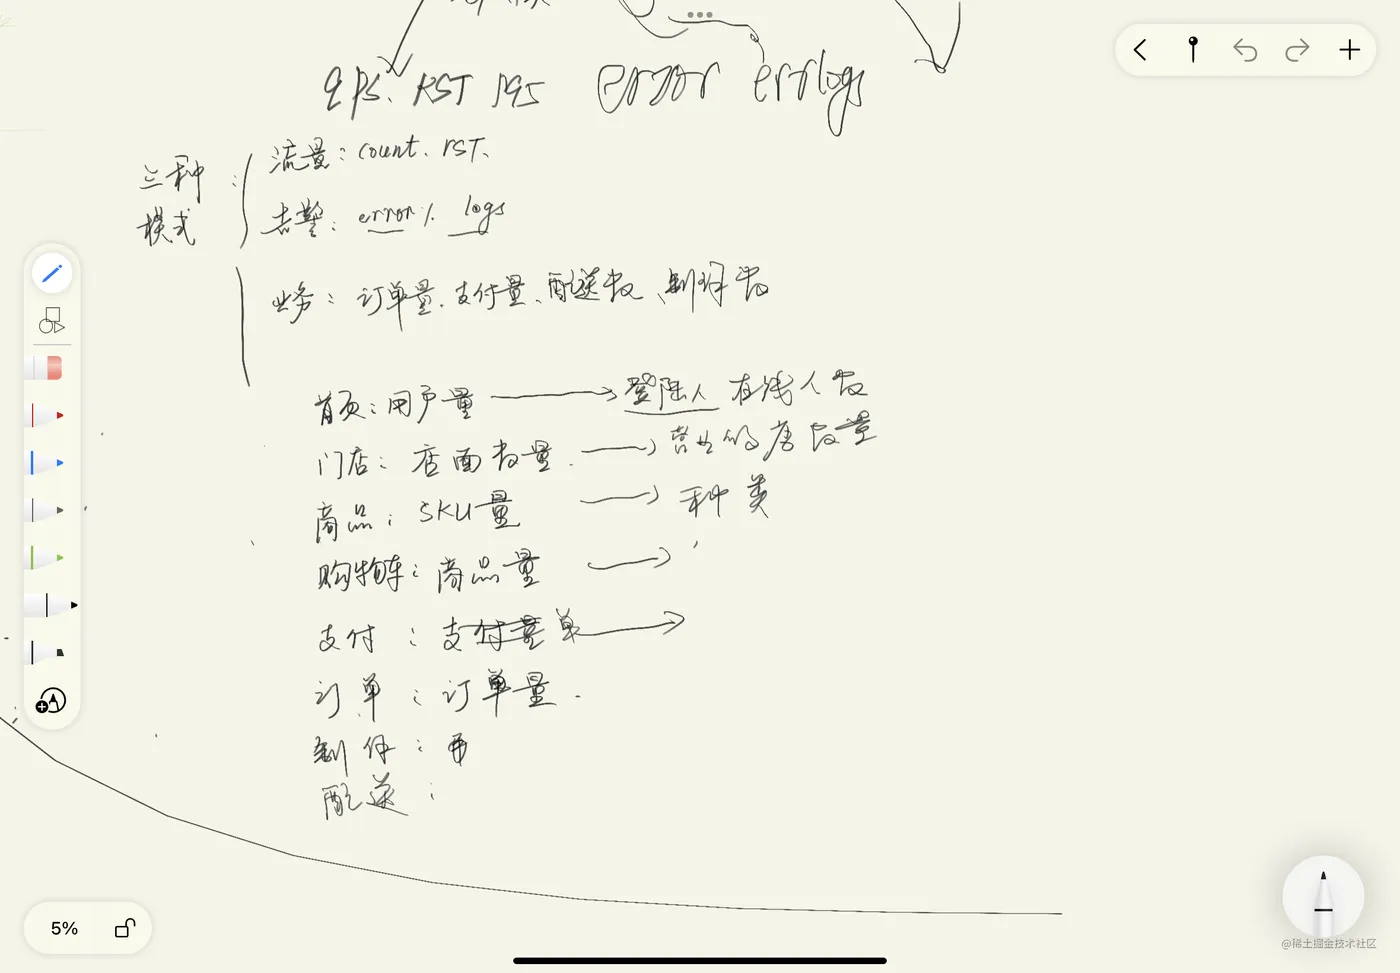 qps. RST 195 error errlogs
三种模式:
流量: count. rST、
告警: error% logs
业务: 订单量. 支付量、配送数、制作数
首页: 用户量 → 登陆人 在线人数
门店: 店面数量. → 营业的店数量
商品: SKU量 → 种类
购物车: 商品量 →
支付: 支付量单 →
订单: 订单量.
制作:
配送:
5%
@稀土掘金技术社区